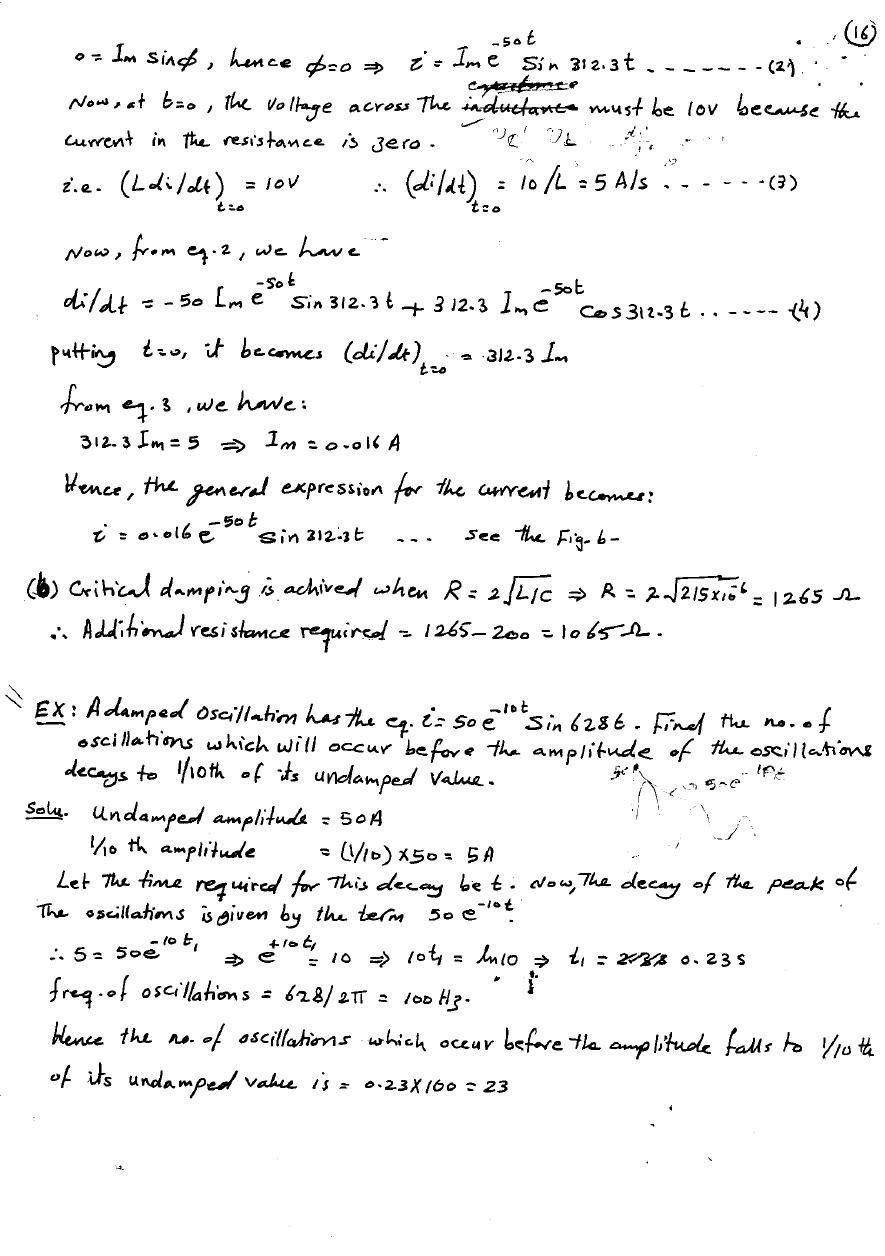 (16)
0 = Im sinϕ, hence ϕ=0 ⇒ i = Im e^-50t Sin 312.3t - - - - - - - (2)
Now, at t=0, the voltage across the inductance must be 10V because the
current in the resistance is zero.
i.e. (Ldi/dt)t=0 = 10V ∴ (di/dt)t=0 = 10/L = 5 A/s . - - - - - - (3)
Now, from eq.2, we have
di/dt = -50 Im e^-50t Sin 312.3t + 312.3 Im e^-50t Cos 312.3t . . - - - - - (4)
putting t=0, it becomes (di/dt)t=0 = 312.3 Im
from eq.3, we have:
312.3 Im = 5 ⇒ Im = 0.016 A
Hence, the general expression for the current becomes:
i = 0.016 e^-50t sin 312.3t - - - see the Fig-b-
(b) Critical damping is achived when R = 2√L/C ⇒ R = 2√2/5x10^-6 = 1265 Ω
∴ Additional resistance required = 1265-200 = 1065Ω.
EX: A damped oscillation has the eq. i = 50 e^-10t Sin 628t. Find the no. of
oscillations which will occur before the amplitude of the oscillations
decays to 1/10th of its undamped value.
Solu. Undamped amplitude = 50A
1/10 th amplitude = (1/10) x 50 = 5A
Let The time required for This decay be t. Now, The decay of the peak of
The oscillations is given by the term 50 e^-10t.
∴ 5 = 50e^-10t1 ⇒ e^+10t1 = 10 ⇒ 10t1 = ln10 ⇒ t1 = 0.23s
freq. of oscillations = 628/2π = 100 Hz.
Hence the no. of oscillations which occur before the amplitude falls to 1/10 th
of its undamped value is = 0.23 X 100 = 23